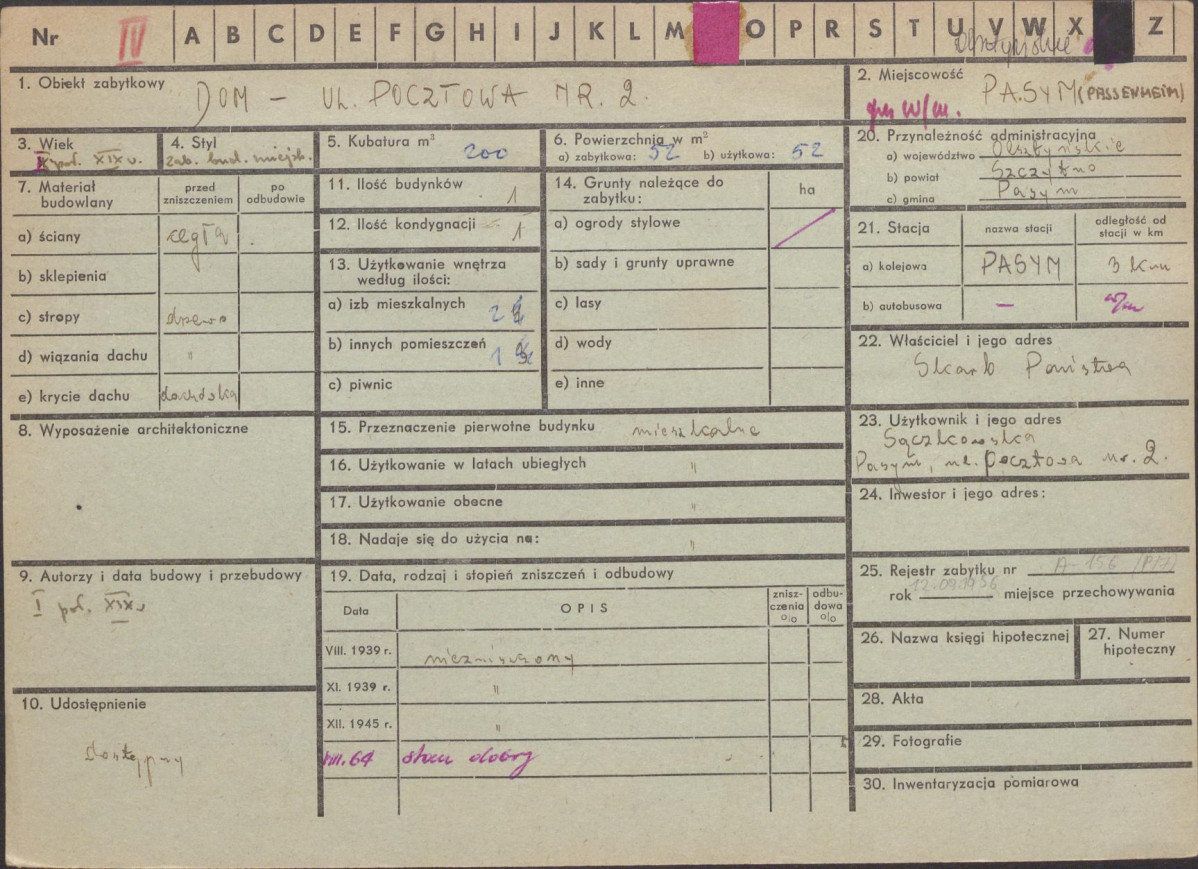 Nr IV A B C D E F G H I J K L M O P R S T U V W X Z
Olsztyńskie
1. Obiekt zabytkowy
DOM – UL. POCZTOWA NR. 2.
2. Miejscowość
PASYM (PASSENHEIM)
gm w/m.
3. Wiek
I poł. XIX w.
4. Styl
zab. bud. miejsk.
5. Kubatura m³ 200
6. Powierzchnia w m²
a) zabytkowa: 52 b) użytkowa: 52
20. Przynależność administracyjna
a) województwo Olsztyńskie
b) powiat Szczytno
c) gmina Pasym
7. Materiał budowlany
przed zniszczeniem
po odbudowie
a) ściany cegła
b) sklepienia
c) stropy drewno
d) wiązania dachu "
e) krycie dachu dachówka
11. Ilość budynków 1
12. Ilość kondygnacji 1
13. Użytkowanie wnętrza
według ilości:
a) izb mieszkalnych 2
b) innych pomieszczeń 1
c) piwnic
14. Grunty należące do
zabytku:
ha
a) ogrody stylowe
b) sady i grunty uprawne
c) lasy
d) wody
e) inne
21. Stacja
nazwa stacji
odległość od
stacji w km
a) kolejowa PASYM 3 km
b) autobusowa – w/m
22. Właściciel i jego adres
Skarb Państwa
8. Wyposażenie architektoniczne
15. Przeznaczenie pierwotne budynku mieszkalne
16. Użytkowanie w latach ubiegłych "
17. Użytkowanie obecne "
18. Nadaje się do użycia na: "
23. Użytkownik i jego adres
Sączkowska
Pasym, ul. Pocztowa nr. 2.
24. Inwestor i jego adres:
9. Autorzy i data budowy i przebudowy
I poł. XIX w
10. Udostępnienie
dostępny
19. Data, rodzaj i stopień zniszczeń i odbudowy
Data
OPIS
znisz-
czenia
%
odbu-
dowa
%
VIII. 1939 r. niezniszczony
XI. 1939 r. "
XII. 1945 r. "
VIII.64 stan dobry
25. Rejestr zabytku nr A-156
rok 12.09.1956 miejsce przechowywania
26. Nazwa księgi hipotecznej
27. Numer
hipoteczny
28. Akta
29. Fotografie
30. Inwentaryzacja pomiarowa